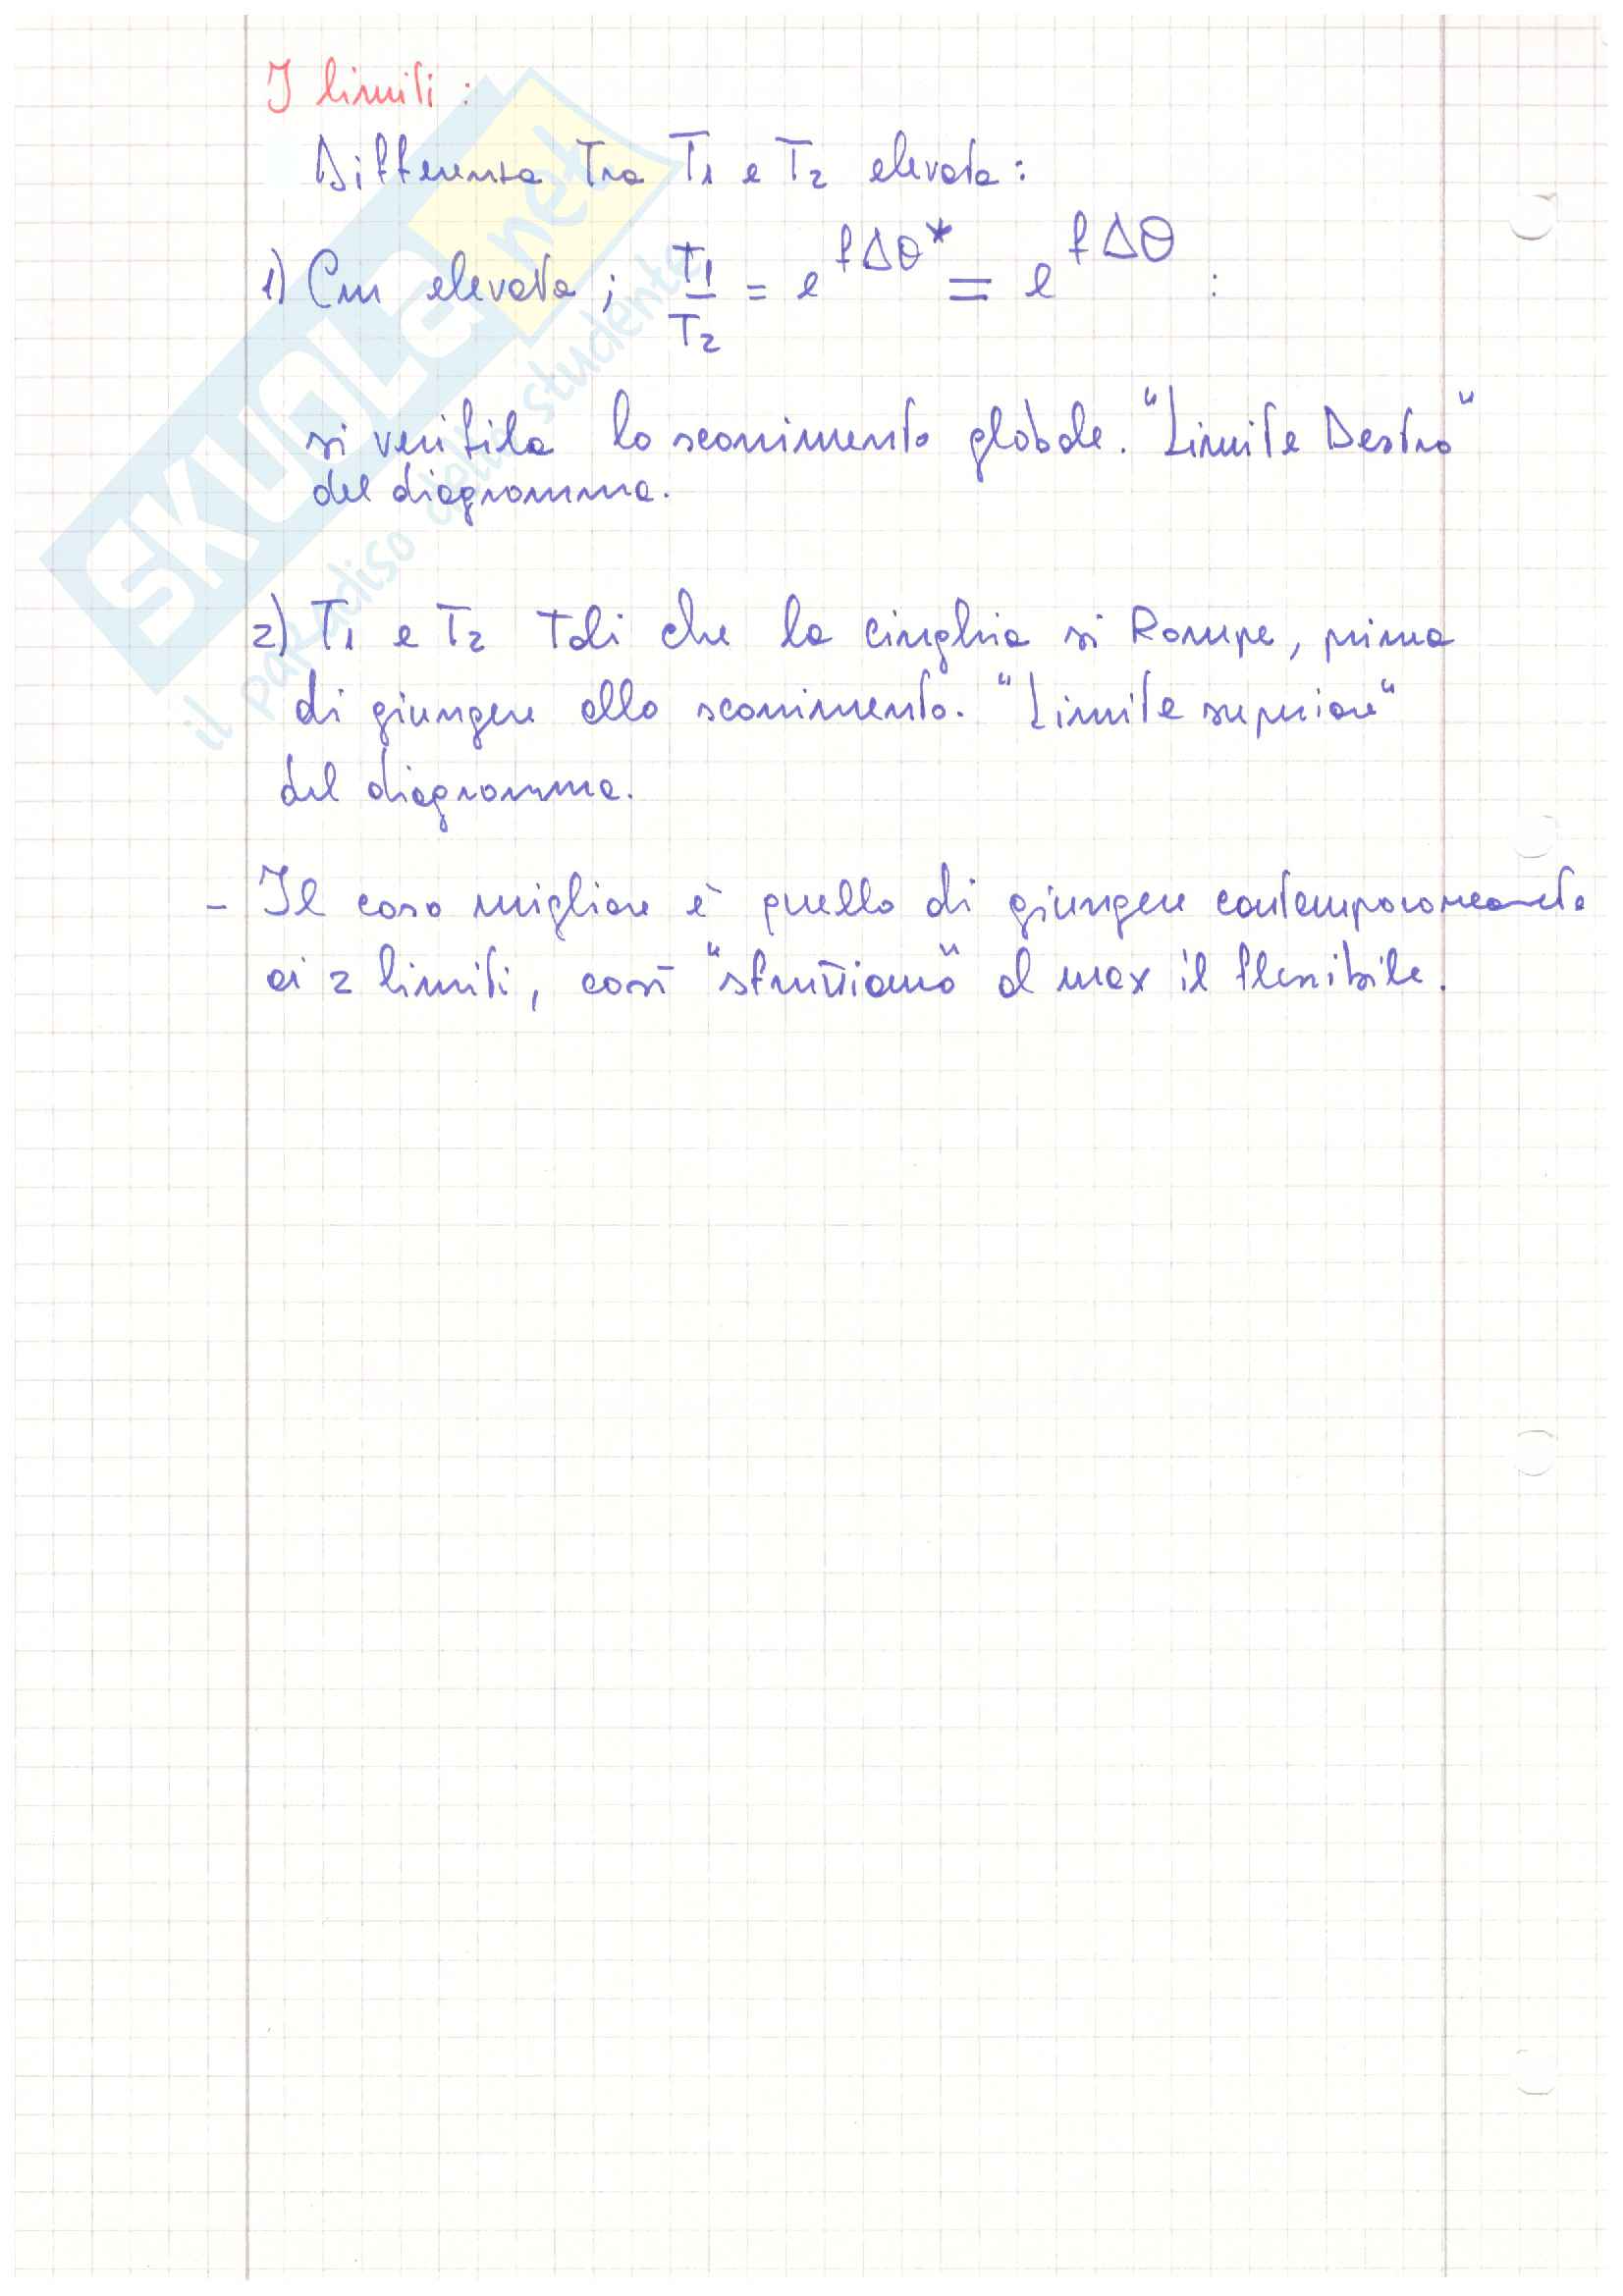 I limiti:
Differenza Tra T1 e T2 elevata:
1) Cm elevata; T1/T2 = e^fΔθ* = e^fΔθ :
si verifica lo scorrimento globale. "Limite Destro"
del diagramma.
2) T1 e T2 Tali che la cinghia si Rompe, prima
di giungere allo scorrimento. "Limite superiore"
del diagramma.
- Il caso migliore è quello di giungere contemporaneamente
ai 2 limiti, così "sfruttiamo" al max il flessibile.
SKUOLa.net
il paRadiso dello studente